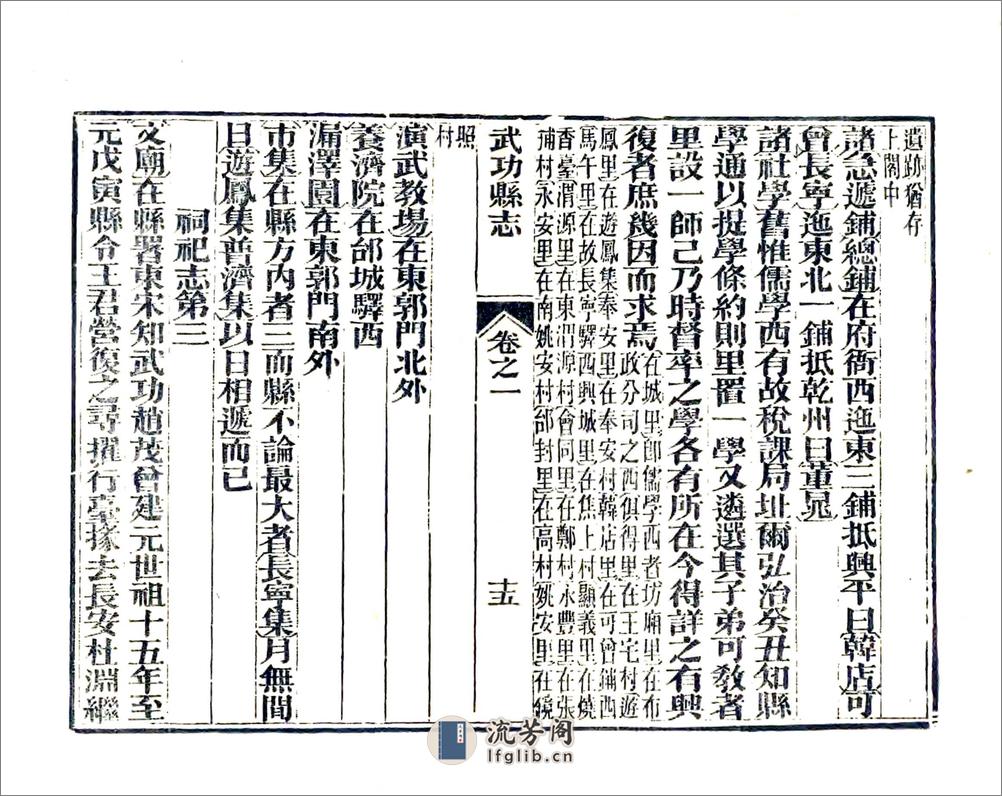 遺跡猶存
上閣中
諸急遞鋪總鋪在府衙西迤東三鋪抵興平曰韓店可
曾長寧迤東北一鋪抵乾州曰董晁
諸社學舊惟儒學西有故稅課局址爾弘治癸丑知縣
學通以提學條約則里置一學又遴選其子弟可教者
里設一師己乃時督率之學各有所在今得詳之有興
復者庶幾因而求焉
在城里即儒學西者坊廟里在布
政分司之西俱得里在王宅村遊
鳳里在遊鳳集奉安里在奉安村韓店里在可曾鋪西
馬午里在故長寧驛西興城里在焦上村顯義里在燒
香臺渭源里在東渭源村會同里在鄭村永豐里在張
堳村永安里在南姚安村邰封里在高村姚安里在繞
武功縣志
卷之一
十五
照
村
演武教場在東郭門北外
養濟院在邰城驛西
漏澤園在東郭門南外
市集在縣方內者三而縣不論最大者長寧集月無間
日遊鳳集普濟集以日相遞而已
祠祀志第三
文廟在縣署東宋知武功趙茂曾建元世祖十五年至
元戊寅縣令王君營復之尋擢行臺掾去長安杜淵繼
流芳閣
lfglib.cn